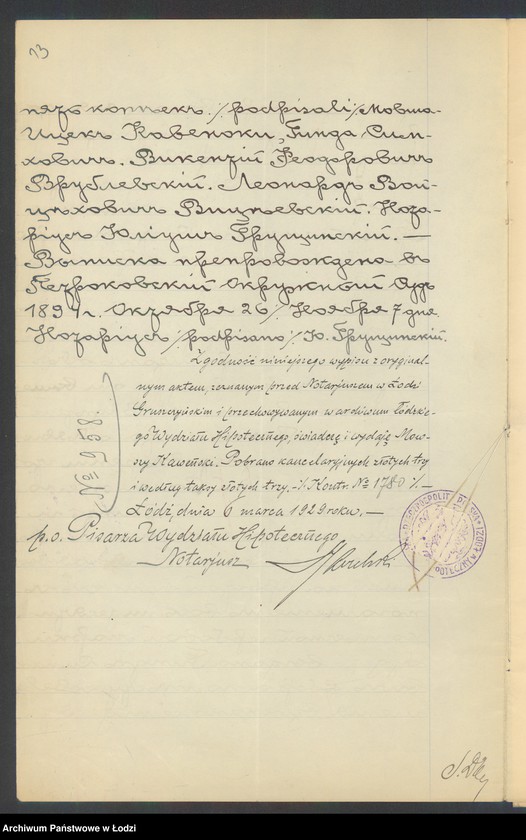 13
пять копѣекъ. /подписали/ Мовша-
Ицекъ Кавеноки, Гинда Сим-
ховичъ. Викентій Феодоровичъ
Врублевскій. Леонардъ Вой-
цѣховичъ Вицѣевскій. Нота-
ріусъ Юліушъ Грущинскій. —
Выписка препровождена въ
Петроковскій Окружной Судъ
189 г. Октября 26/ Ноября 7 дня.
Нотаріусъ /подписано/ Ю. Грущинскій.
Zgodność niniejszego wypisu z orygnal-
nym aktem, zeznanym przed Notarjuszem w Łodzi
Gruszczyńskim i przechowywanym w archiwum Łódzkie-
go Wydziału Hipotecznego, świadczę i wydaję Mow-
szy Kaweńoki. Pobrano kancelaryjnych złotych trzy
i według taksy złotych trzy. Kontr. № 1780 /. —
Łódź, dnia 6 marca 1929 roku. —
p.o. Pisarza Wydziału Hipotecznego
Notarjusz
№ 5658.
Archiwum Państwowe w Łodzi